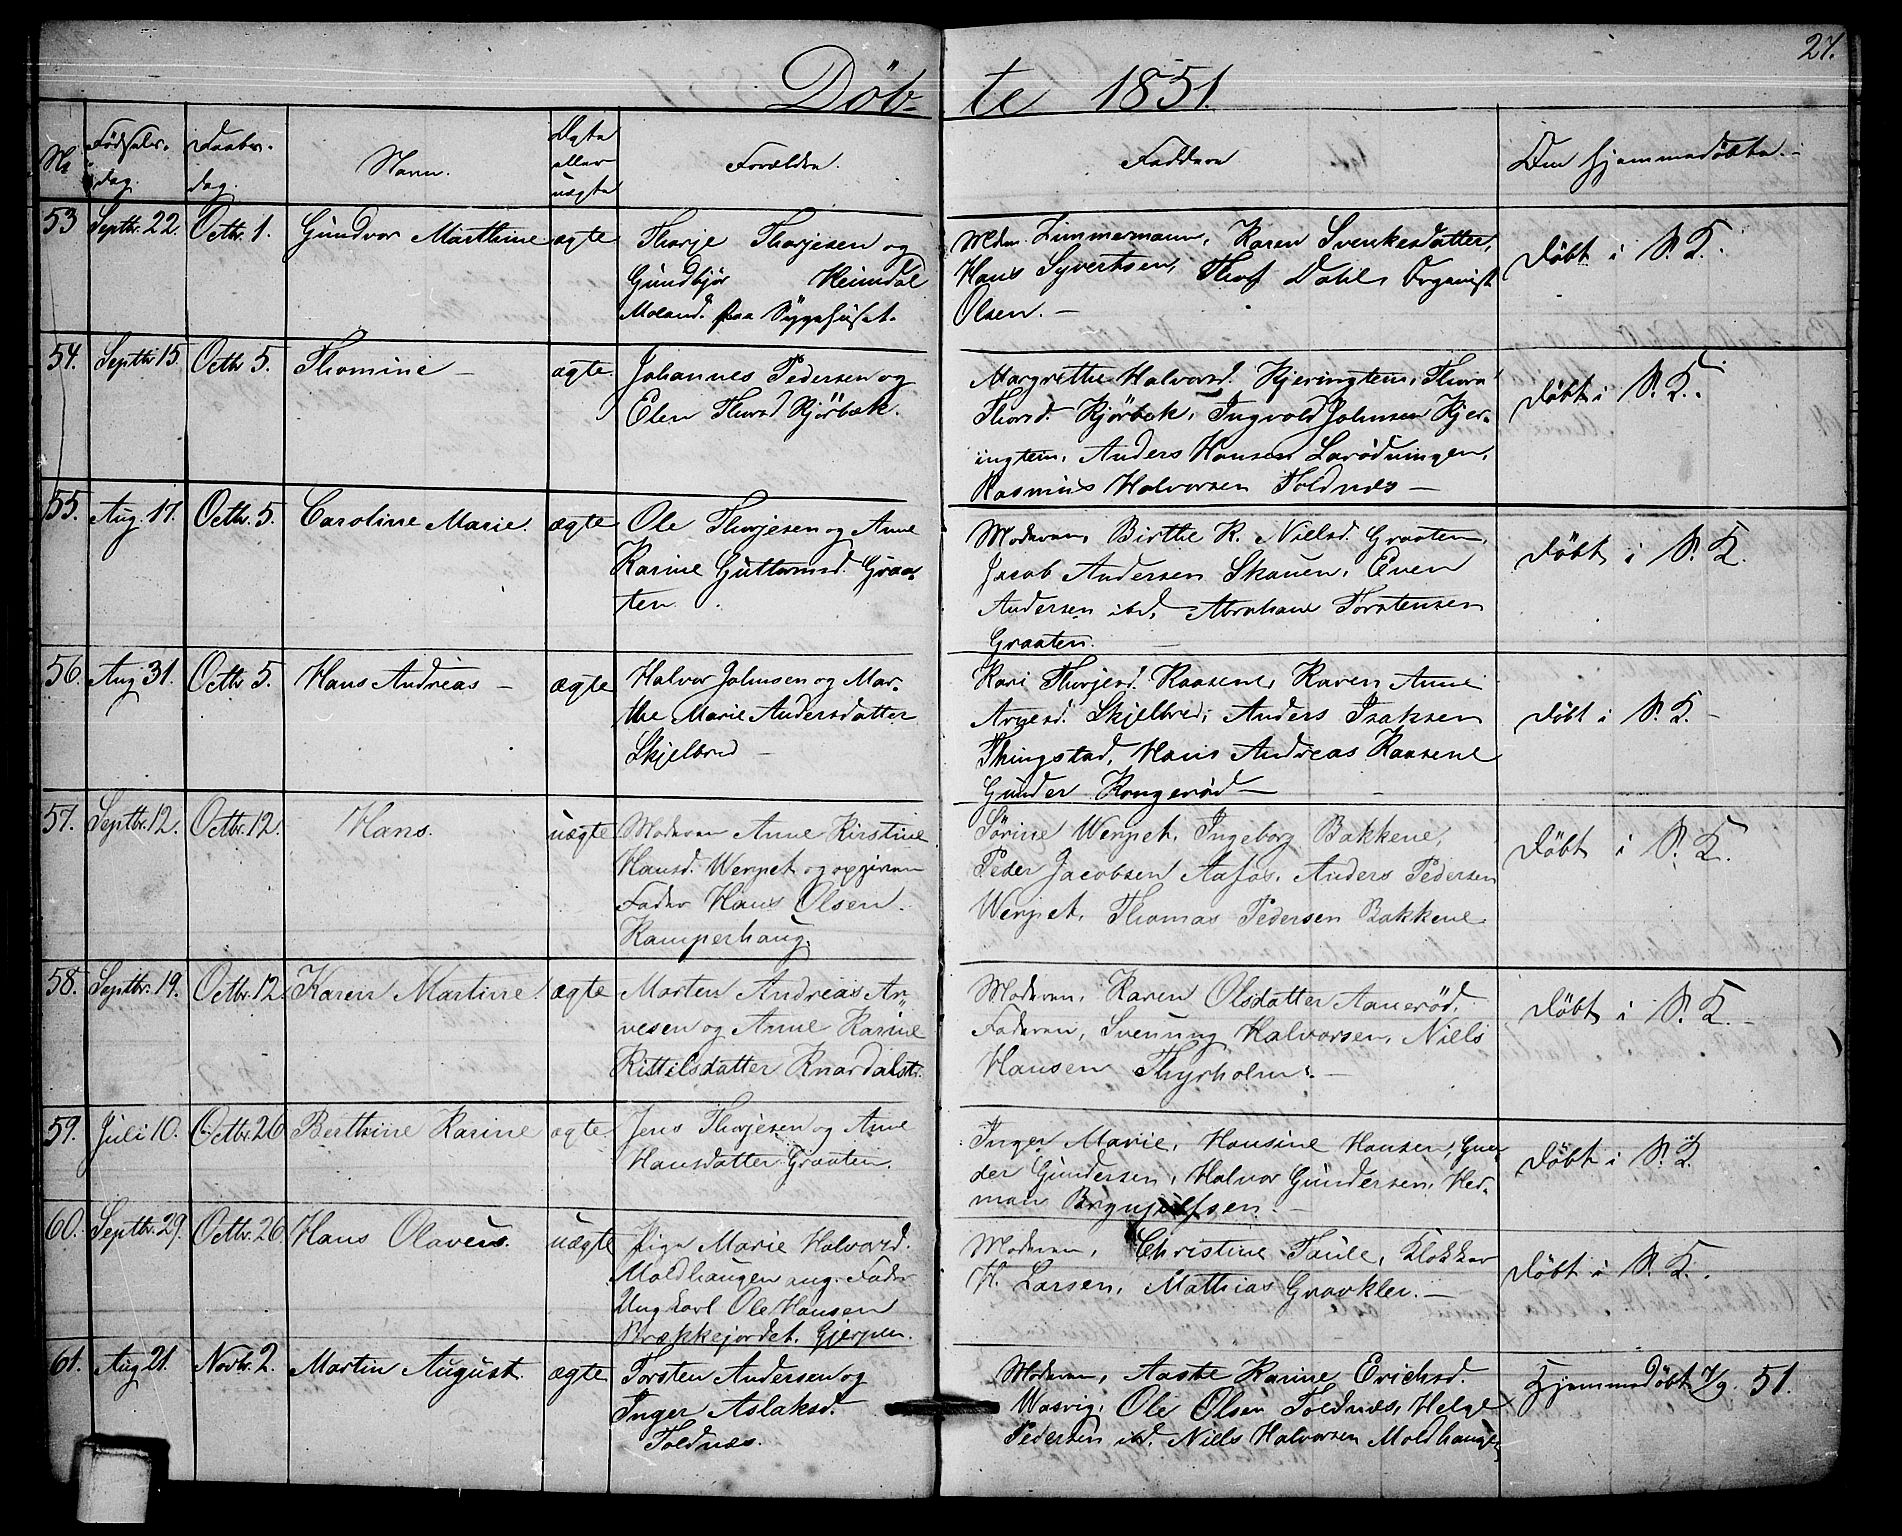 27.
Döb- te 1851.
No Fødsels- dag. Daabs- dag. Navn. Ægte eller uægte Forældre. Faddere Om hjemmedöbte.-
53 Septbr. 22. Octbr. 1. Gundvor Marthine ægte Thorje Thorjesen og
Gundbjör Heimdal
Moland. paa Sygehuset.
Mdm. Zimmermann, Karen Svenkesdatter,
Hans Syvertsen, Thof Dahl, Organist
Olsen. -
Döbt i S. K.
54. Septbr 15 Octbr 5. Thomine - ægte. Johannes Pedersen og
Elen Thorsd Kjörbæk.
Margrethe Halvorsd. Kjeringtem, Thora
Thorsd. Kjörbek, Ingvald Johnsen Kjer-
ingtem, Anders Hansen Larödningen,
Rasmus Halvorsen Foldnæs -
Döbt i S. K.
55. Aug. 17. Octbr. 5. Caroline Marie. ægte Ole Thorjesen og Anne
Karine Guttormsd. Graa-
ten.
Moderen, Birthe K. Nielsd. Graaten,
Jacob Andersen Skauen, Even
Andersen ibd, Abraham Torstensen
Graaten.
Döbt i S. K.
56. Aug 31. Octbr 5. Hans Andreas - ægte Halvor Johnsen og Mar-
the Marie Andersdatter
Skjelbred -
Kari Thorjesd. Kaasene, Karen Anne
Arnesd. Skjelbred, Anders Isaksen
Thingstad, Hans Andreas Kaasene
Gunder Kongeröd -
Döbt i S. K. -
57. Septbr. 12. Octbr. 12. Hans. uægte Moderen Anne Kirstine
Hansd. Werpet og opgiven
Fader Hans Olsen
Kamperhaug.
Sörine Werpet, Ingeborg Bakkene,
Peder Jacobsen Aafos, Anders Pedersen
Werpet, Thomas Pedersen Bakkene.
Döbt i S. K.
58. Septbr. 19. Octbr. 12. Karen Martine. ægte Morten Andreas Ar-
vesen og Anne Karine
Kittilsdatter Knardalst.
Moderen, Karen Olsdatter Aaneröd,
Faderen, Svenung Halvorsen, Niels
Hansen Thyrholm. -
Döbt i S. K. -
59. Juli 10. Octbr. 26 Berthine Karine ægte. Jens Thorjesen og Anne
Hansdatter Graaten.
Inger Marie, Hansine Hansen, Gun-
der Gundersen, Halvor Gundersen, Her-
man Brynjulfsen. -
Döbt i S. K.
60. Septbr. 29. Octbr. 26. Hans Olaveus. uægte Pige Marie Halvorsd.
Moldhaugen ang. Fader
Ung Carl Ole Hansen
Brækkejordet. Gjerpen.
Moderen, Christine Faule, Klokker
H. Larsen, Mathias Gravkler. -
Döbt i S. K.
61. Aug 21. Novbr. 2. Martin August. ægte Torsten Andersen og
Inger Aslaksd.
Foldnæs.
Moderen, Aaste Karine Erichsd.
Wasvig, Ole Olsen Foldnæs, Helge
Pedersen ibd. Niels Halvorsen Moldhaugen
Hjemmedöbt 7/9. 51.